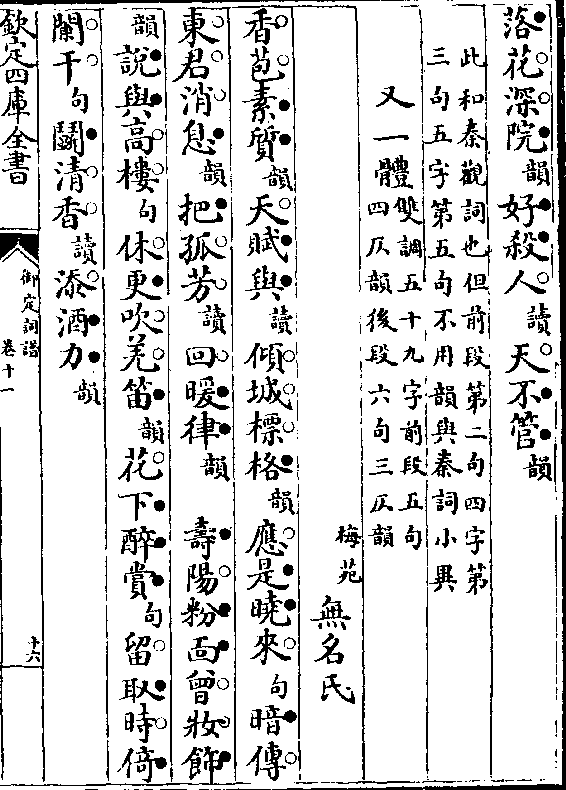 落花深院韻好殺人讀天不管韻
此和秦觀詞也但前段第二句四字第
三句五字第五句不用韻與秦詞小異
又一體雙調五十九字前段五句
四仄韻後段六句三仄韻
梅苑無名氏
香苞素質韻天賦與讀傾城標格韻應是曉來句暗傳
東君消息韻把孤芳讀回暖律韻壽陽粉面曾妝飾
韻說與高樓句休更吹羌笛韻花下醉賞句留取時倚
闌干句鬭清香讀添酒力韻
欽定四庫全書
御定詞譜
卷十一
十六